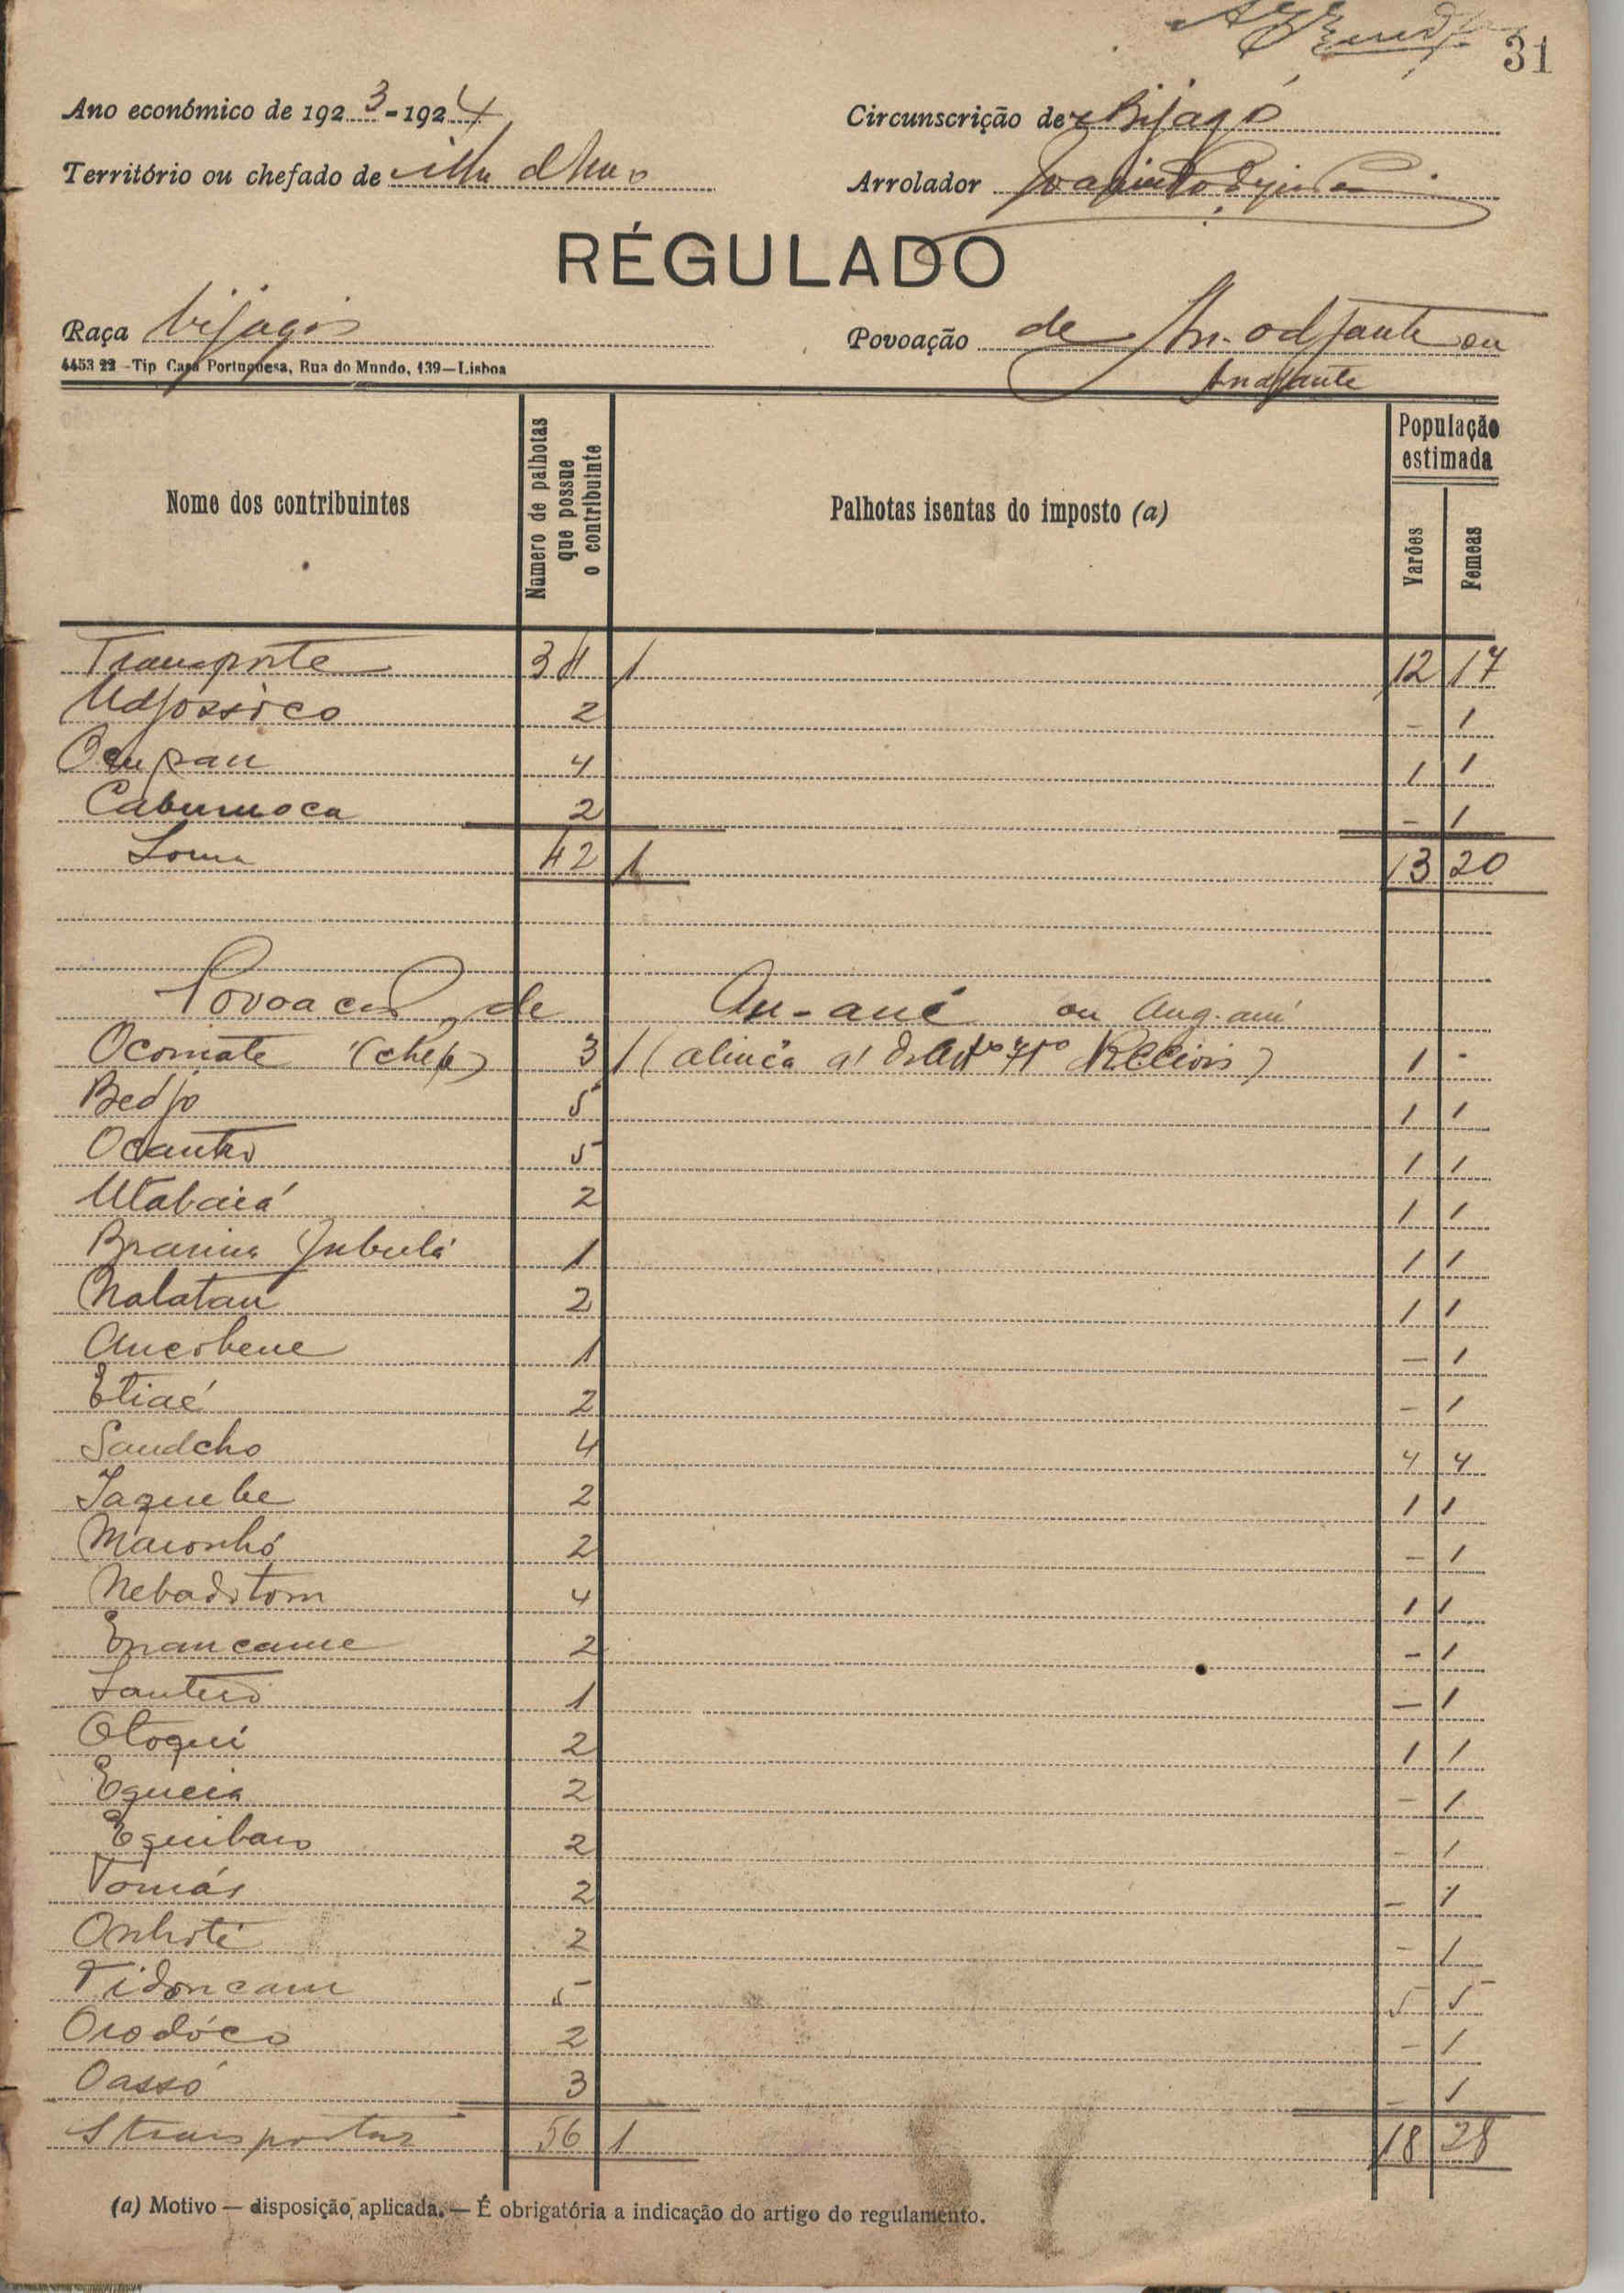 31
Ano económico de 1923-1924 Circunscrição de Bijagó
Território ou chefado de ilha d Arrolador
RÉGULADO
Raça bijagós Povoação de An-odjante ou
4453 22 - Tip Casa Portuguesa, Rua do Mundo, 139—Lisboa Andjante
Nome dos contribuintes Numero de palhotas que possue o contribuinte Palhotas isentas do imposto (a) População estimada Varões Femeas
Transporte 34 1 12 17
Udjossòco 2 - 1
Ocupau 4 1 1
Cabumoca 2 - 1
Soma 42 1 13 20
Povoação de An-ané ou Ang-ané
Ocomate (chefe) 3 1 (alinea a) do 1 -
Bedjo 5 1 1
Ocanto 5 1 1
Utabaiá 2 1 1
Branima Jubulá 1 1 1
Nalatau 2 1 1
Ancobene 1 — 1
Etiaé 2 - 1
Sandcho 4 4 4
Jaquebe 2 1 1
Maionhó 2 - 1
Nebadotom 4 1 1
Enancame 2 - 1
Santeió 1 — 1
Otoqui 2 1 1
Equeia 2 - 1
Equibaio 2 - 1
Tomás 2 - 1
Onhoté 2 - 1
Tidoncam 5 5 5
Orodóco 2 - 1
Oassó 3 - 1
A transportar 56 1 18 28
(a) Motivo — disposição aplicada. — É obrigatória a indicação do artigo do regulamento.